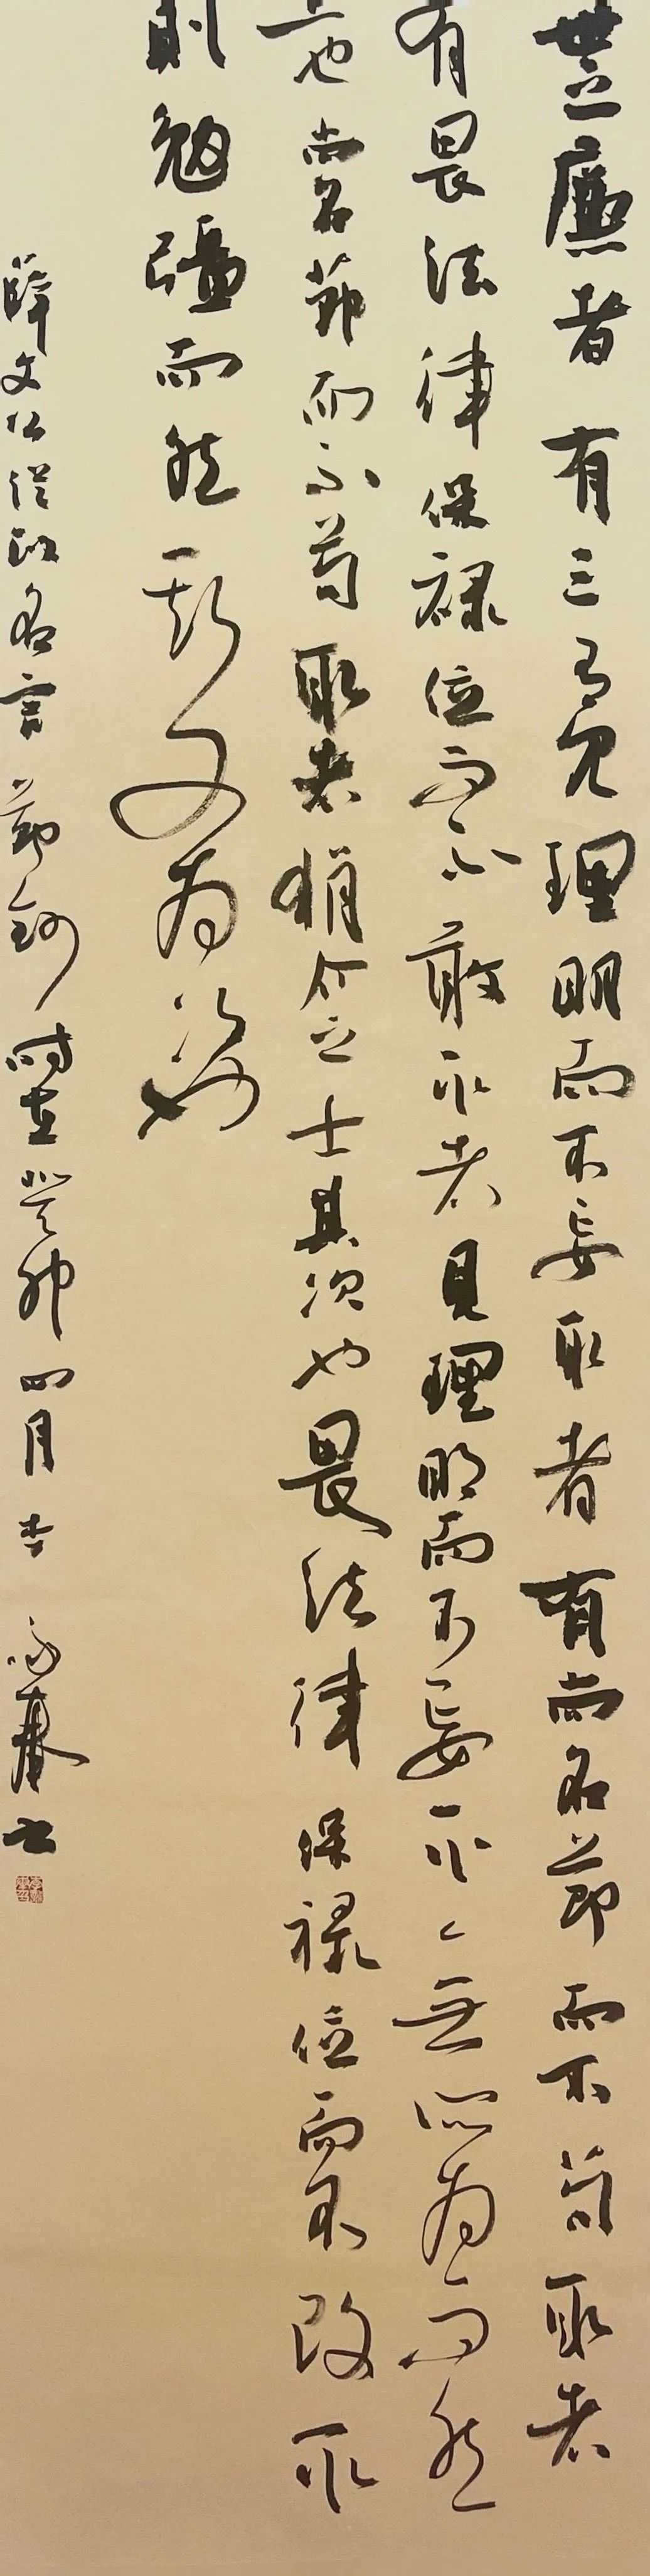 世之廉者有三有见理明而不妄取者有尚名节而不苟取者
有畏法律保禄位而不敢取者见理明而不妄取〻無所为而然
上也尚名节而不苟取者狷介之士其次也畏法律保禄位而不敢取
則勉强而然斯又为次也
薛文公從政名言節鈔時在癸卯四月李 書